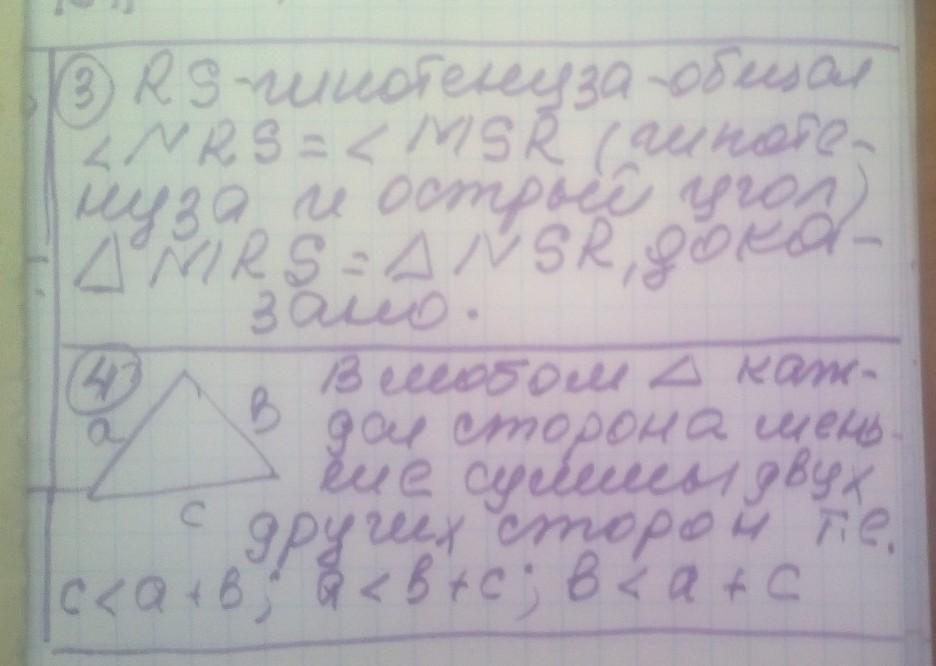 ③ RS-гипотенуза-общая
<NRS=<MSR (гипоте-
нуза и острый угол)
△MRS=△NSR, дока-
зано.
④ В любом △ каж-
a B дая сторона мень-
ше суммы двух
c других сторон т.е.
c<a+в; a<в+c; в<a+c